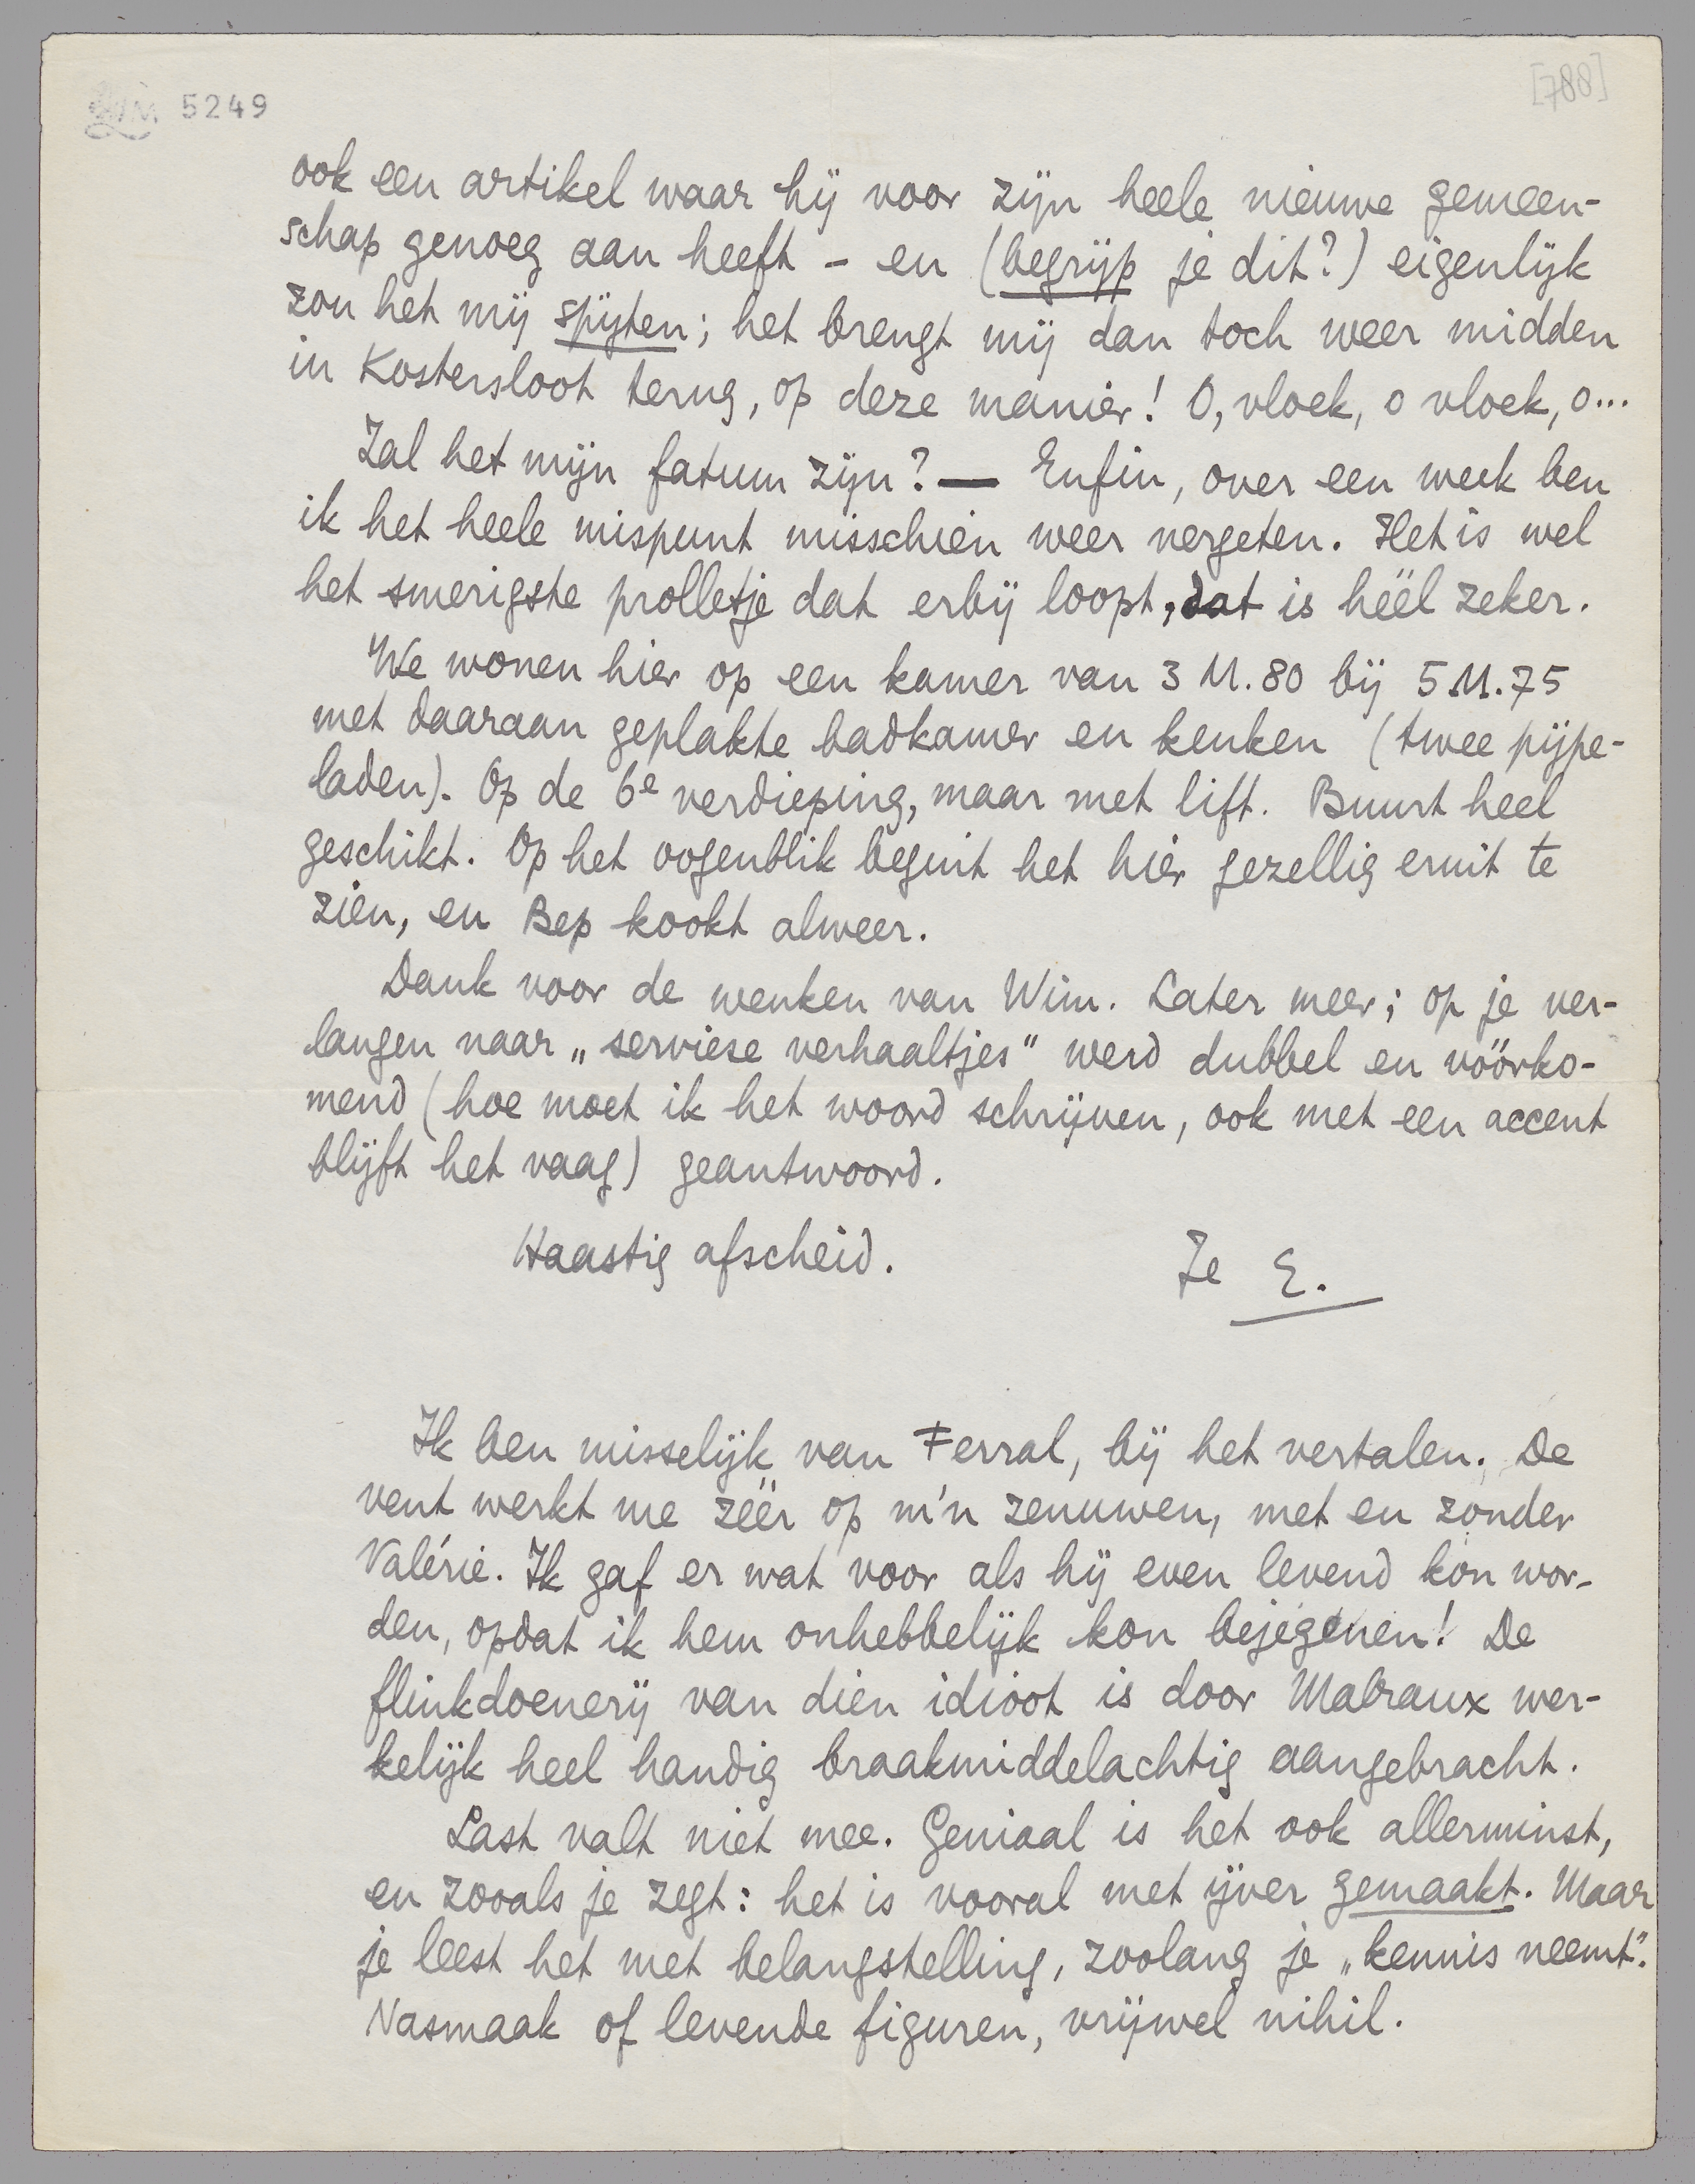 LM 5249
[788]
ook een artikel waar hij voor zijn heele nieuwe gemeen-
schap genoeg aan heeft - en (begrijp je dit?) eigenlijk
zou het mij spijten; het brengt mij dan toch weer midden
in Kostersloot terug, op deze manier! O, vloek, o vloek, o...
Zal het mijn fatum zijn? — Enfin, over een week ben
ik het heele mispunt misschien weer vergeten. Het is wel
het smerigste prolletje dat erbij loopt, dat is héél zeker.
We wonen hier op een kamer van 3 M. 80 bij 5 M. 75
met daaraan geplakte badkamer en keuken (twee pijpe-
laden). Op de 6e verdieping, maar met lift. Buurt heel
geschikt. Op het oogenblik begint het hier gezellig eruit te
zien, en Bep kookt alweer.
Dank voor de wenken van Wim. Later meer; op je ver-
langen naar „serviese verhaaltjes” werd dubbel en vóórko-
mend (hoe moet ik het woord schrijven, ook met een accent
blijft het vaag) geantwoord.
Haastig afscheid.
Je E.
Ik ben misselijk van Ferral, bij het vertalen. De
vent werkt me zéér op m'n zenuwen, met en zonder
Valérie. Ik gaf er wat voor als hij even levend kon wor-
den, opdat ik hem onhebbelijk kon bejegenen! De
flinkdoenerij van dien idioot is door Malraux wer-
kelijk heel handig braakmiddelachtig aangebracht.
Last valt niet mee. Geniaal is het ook allerminst,
en zooals je zegt: het is vooral met ijver gemaakt. Maar
je leest het met belangstelling, zoolang je „kennis neemt”.
Nasmaak of levende figuren, vrijwel nihil.